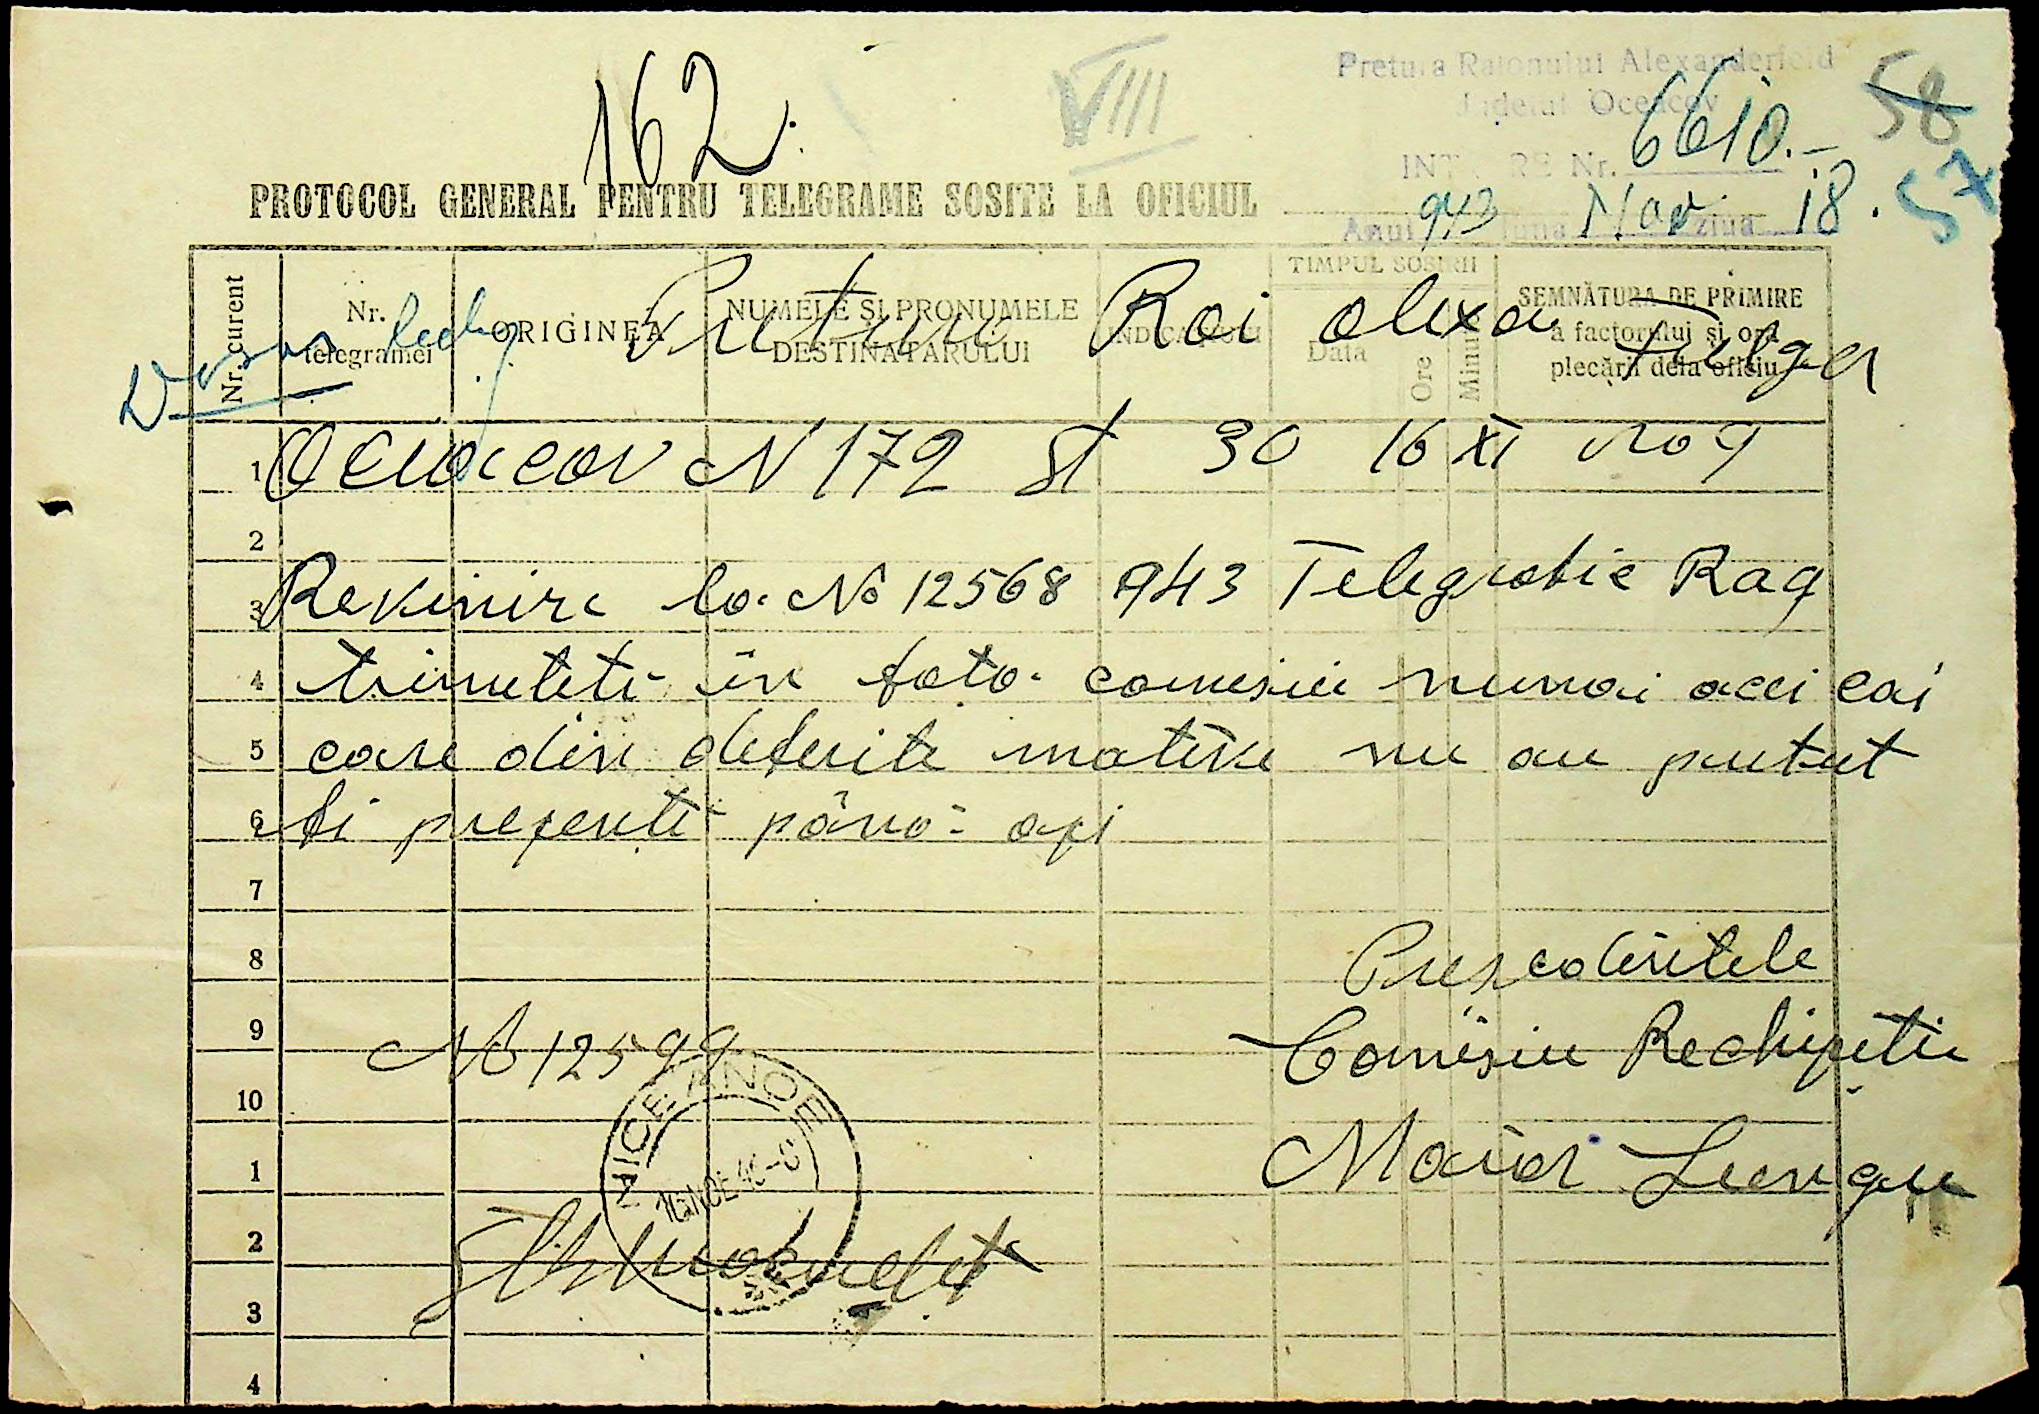 162.
VIII
Pretura Raionului Alexanderfeld
Județul Oceacov
58
INTRARE Nr. 6610.-
57
PROTOCOL GENERAL PENTRU TELEGRAME SOSITE LA OFICIUL
Anul 943 luna Nov ziua 18.
Nr. curent
Nr. telegramei
ORIGINEA
NUMELE ȘI PRONUMELE DESTINATARULUI
INDICAȚIUNI
TIMPUL SOSIRII
Data
Ore
Minute
SEMNĂTURA DE PRIMIRE
a factorului și ora
plecării dela oficiu
Dosar
Pretura Roi Alexa Fulger
1 Oceacov N 172 st 30 16 XI
2
3 Revinire la No 12568 943 Telegrafic Rag
4 trimeteti în fata comisiei numai acei cai
5 care din deferite motive nu au putut
6 fi prezenti până azi
7
8 Presedintele
9 No 12599 Comisiei Rechizitii
10
1 Maior Lungu
2
3
4